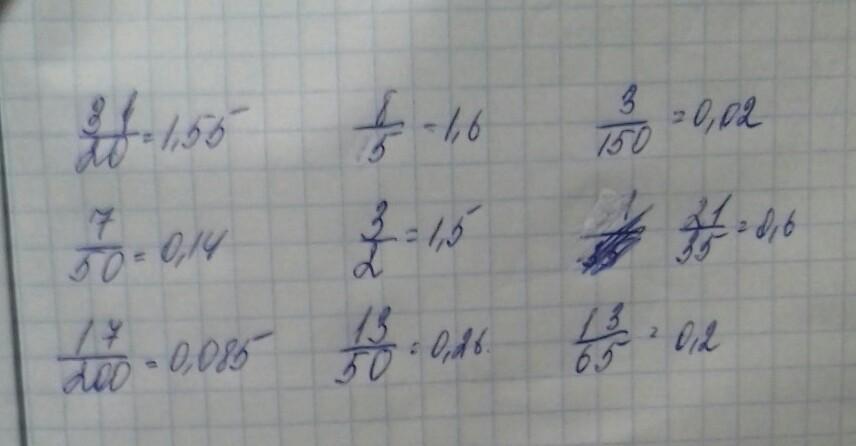 31/20 = 1,55 8/5 = 1,6 3/150 = 0,02
7/50 = 0,14 3/2 = 1,5 21/35 = 0,6
17/200 = 0,085 13/50 = 0,26 13/65 = 0,2